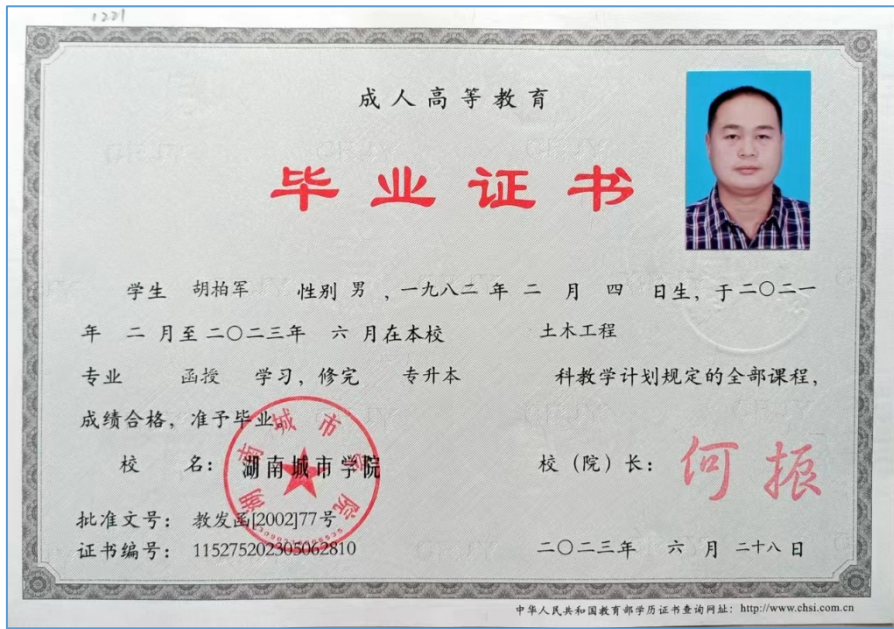 1221
成人高等教育
毕业证书
学生 胡柏军 性别 男 ，一九八二 年 二 月 四 日生，于二〇二一
年 二 月至二〇二三年 六 月在本校 土木工程
专业 函授 学习，修完 专升本 科教学计划规定的全部课程，
成绩合格，准予毕业。
校 名： 湖南城市学院 校（院）长： 何振
湖南城市学院
批准文号： 教发函[2002]77号
证书编号： 115275202305062810 二〇二三年 六 月 二十八 日
中华人民共和国教育部学历证书查询网址：http://www.chsi.com.cn